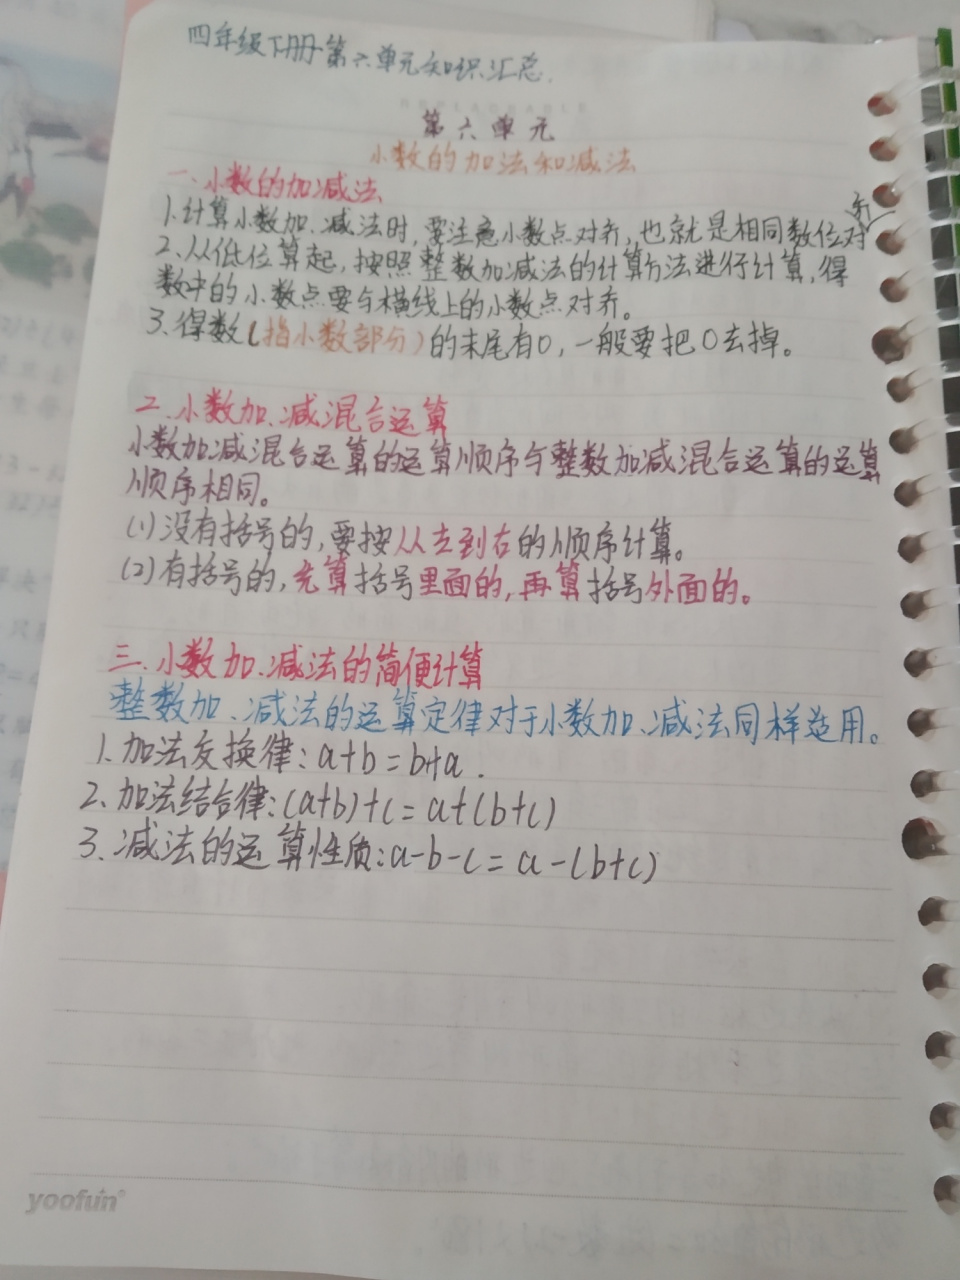 四年级下册第六单元知识汇总.
第六单元
小数的加法和减法
一、小数的加、减法
1.计算小数加、减法时,要注意小数点对齐,也就是相同数位对齐
2.从低位算起,按照整数加减法的计算方法进行计算,得
数中的小数点要与横线上的小数点对齐。
3.得数(指小数部分)的末尾有0,一般要把0去掉。
二、小数加、减混合运算
小数加减混合运算的运算顺序与整数加减混合运算的运算
顺序相同。
(1)没有括号的,要按从左到右的顺序计算。
(2)有括号的,先算括号里面的,再算括号外面的。
三、小数加、减法的简便计算
整数加、减法的运算定律对于小数加、减法同样适用。
1.加法交换律:a+b=b+a.
2.加法结合律:(a+b)+c=a+(b+c)
3.减法的运算性质:a-b-c=a-(b+c)
yoofun